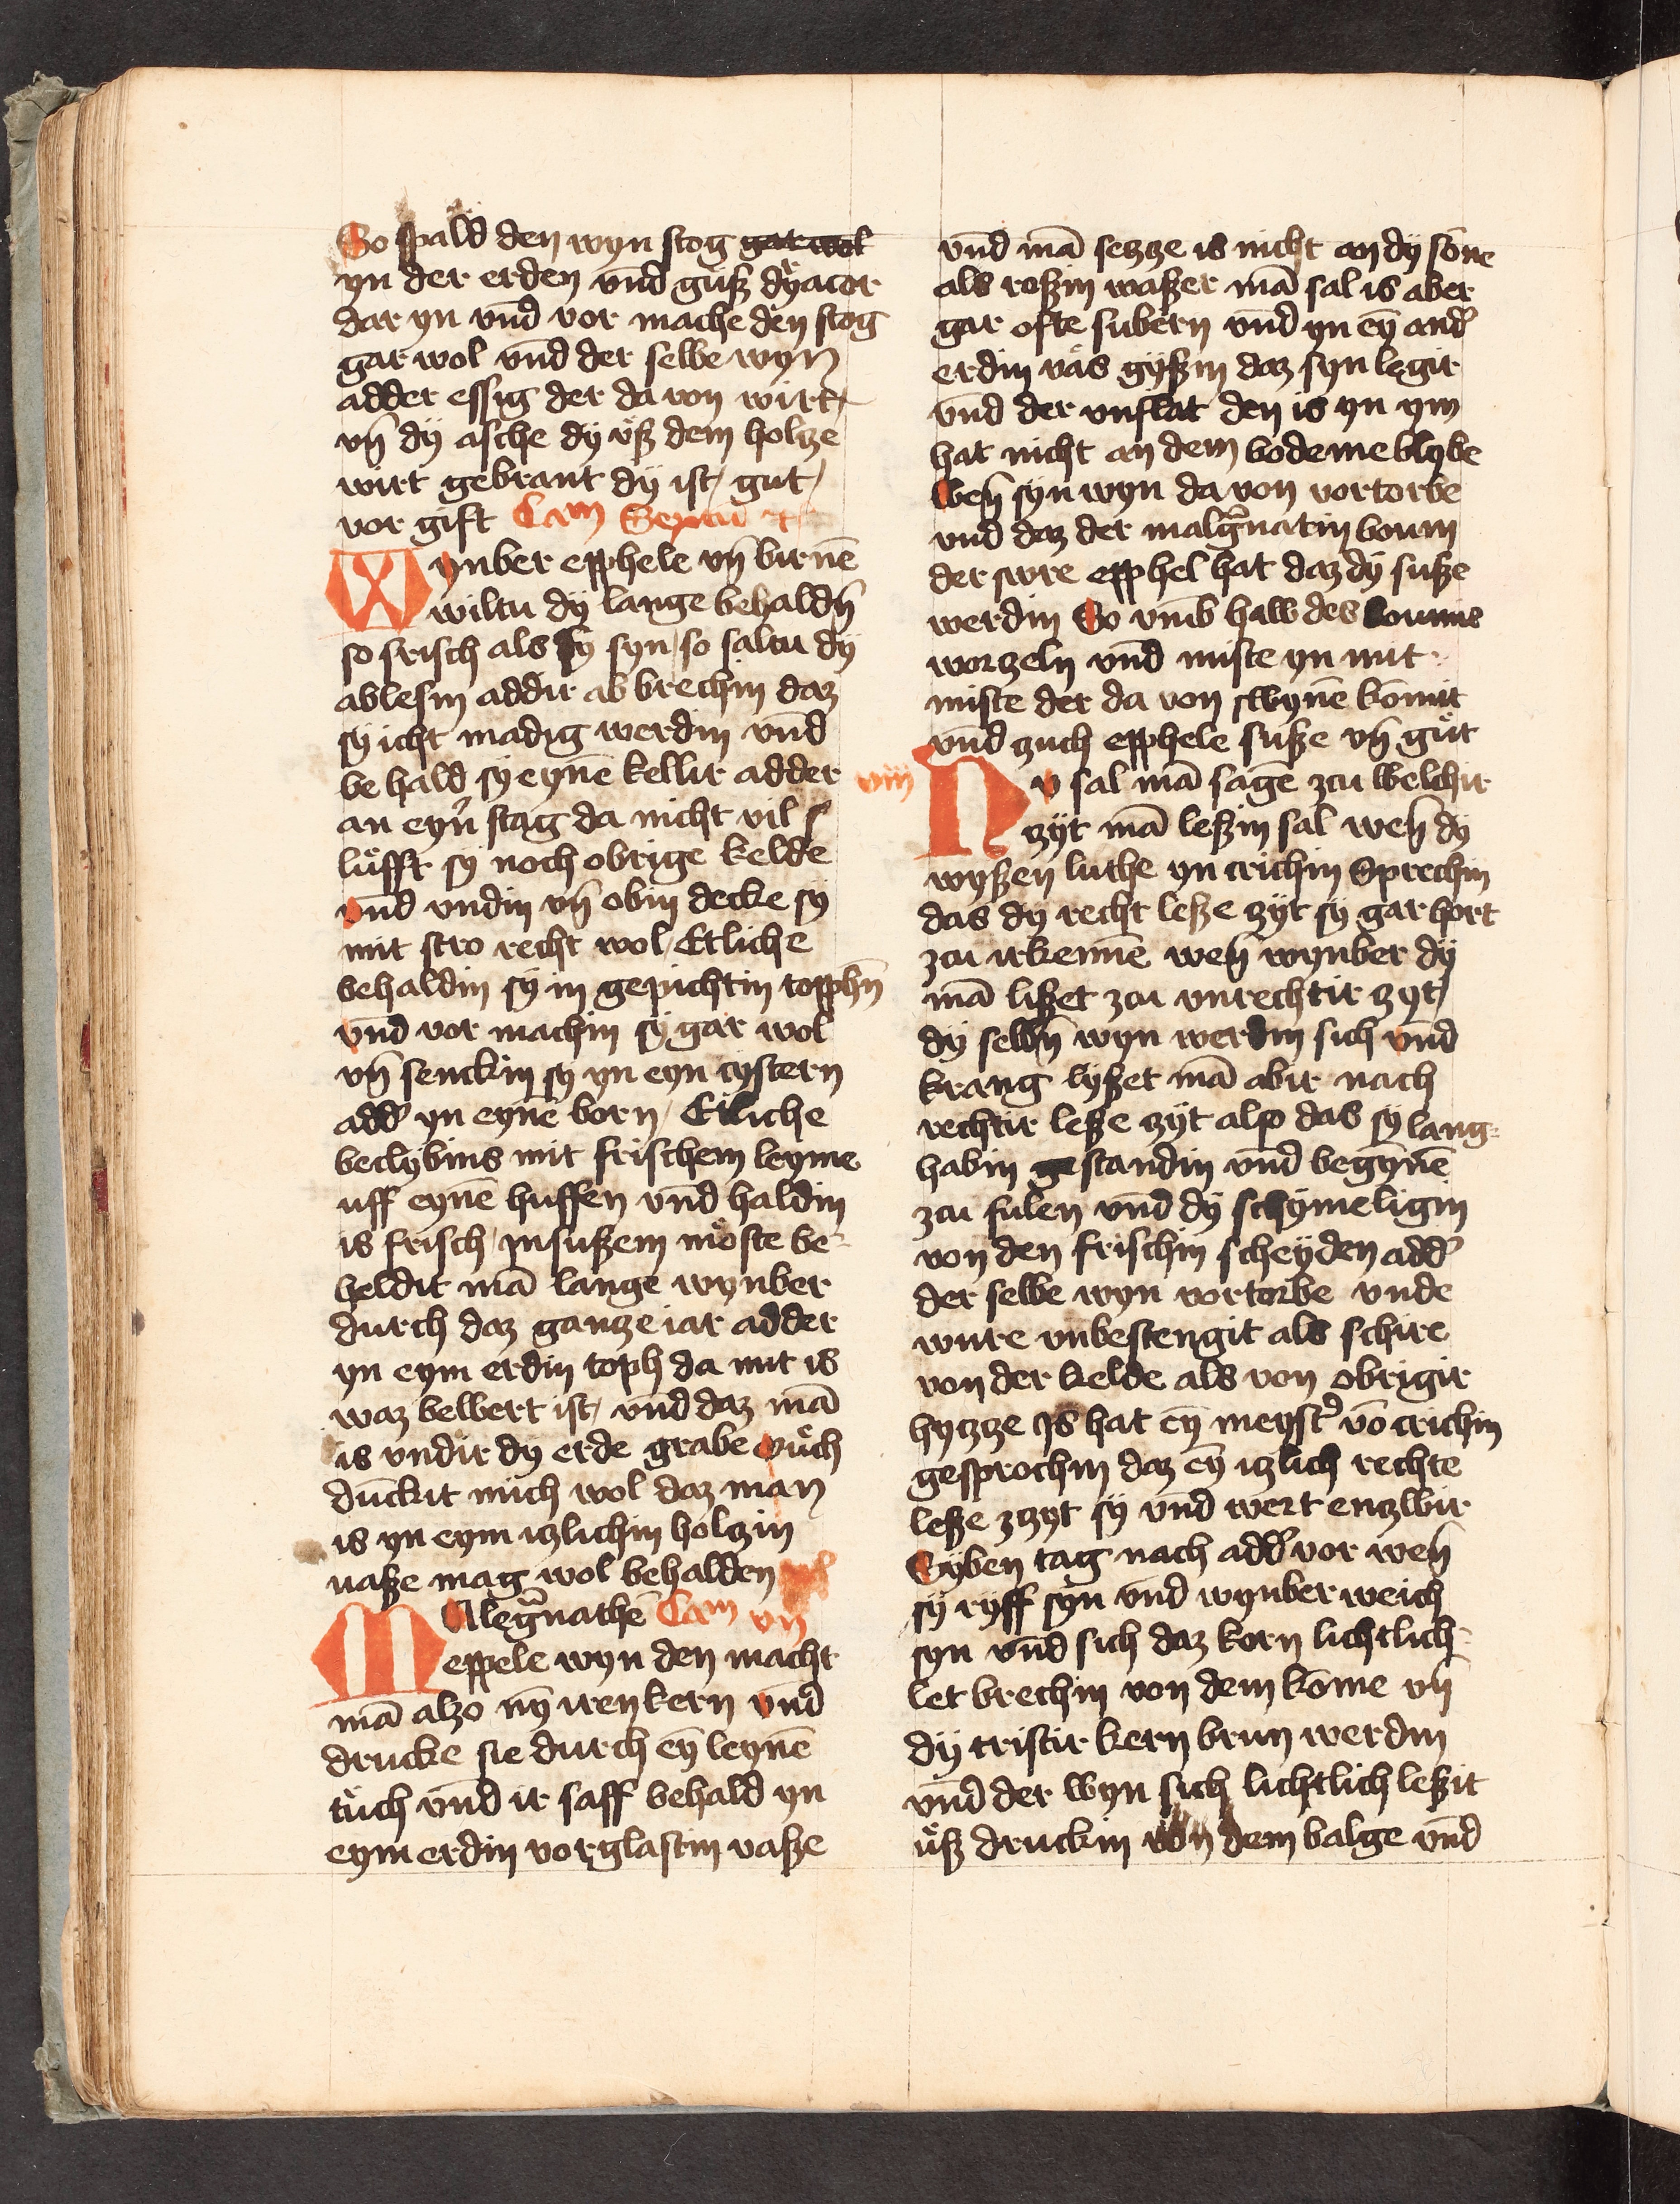 So spald den wyn stog gar wol
yn der erden vnd guͤß dyͤacor
dar yn vnd vor mache den stog
gar wol vnd der selbe wyn
adder essig der da von wirt
vn̄ dÿ asche dÿ uͤß dem holtze
wirt gebrant dÿ ist gut
vor gift Cam Sextum
Wynber epphele vn̄ birnē
wiltu dÿ lange behaldn̄
so frisch als sÿ syn so saltu dÿ
ablesin addir ab brechin daz
sÿ icht madig werdin vnd
be hald sÿ eynē kellir adder
an eyn̄ stag da nicht vil
luͤfft sÿ noch obrige kelde
vnd vndin vn̄ obin decke sÿ
mit stro recht wol Etliche
behaldin sÿ in gepichtin topphn̄
vnd vor machin sÿ gar wol
vn̄ senckin sÿ yn eyn cystern
add' yn eynē born Etliche
beclybins mit frischem leyme
uff eynē huffen vnd haldin
is frisch ynsußem moͤste be-
heldit mā lange wynber
durch daz gantze iar adder
yn eym erdin toph da mit is
waz bewert ist vnd daz mā
is vndir dÿ erde grabe ouͤch
dunckit mich wol daz man
is yn eym itzlichin holtzin
uaße mag wol behalden
Malegͣnathē Cam vij
eppele wyn den macht
mā alzo nȳ iren kern vnd
drucke sie durch eȳ leynē
tuͤch vnd ir saff behald yn
eym erdin vorglastin vaße
vnd mā setzze is nicht an dÿ sōne
als roßin waßer mā sal is aber
gar ofte subern vnd yn eȳ and'
erdin uas gyßin daz syn legir
vnd der vnflat den is yn ym
hat nicht an dem bodeme blybe
wen̄ syn wyn da von vortorbe
vnd daz der malgͣnatin boum
der swre epphel hat daz dÿ suße
werdin So vmb haw des boumis
worzeln vnd miste yn mit
miste der da von swynē komit
vnd zuch epphele suße vn̄ guͤt
viij
Nv sal mā sagē zcu welchir
zyt mā leßin sal wen̄ dÿ
wyßen luthe yn crichin sprechin
das dÿ recht leße zyt sÿ gar hort
zcu irkennē wen̄ wynber dÿ
mā lißet zcu vnrechtir zyt
dÿ selbn̄ wyn werdin sich vnd
krang lyßet mā abir nach
rechtir leße zyt also das sÿ lang-
habin gestandin vnd begynē
zcu fulen vnd dÿ schymeligin
von den frischin scheyden add'
der selbe wyn vortorbe vnde
wure vnbestengit als schire
von der kelde als von obrigir
hytzze Js hat eȳ meyst' vō crichin
gesprochin daz eȳ itzlich rechte
leße zzyt sÿ vnd wert entzwir
Syben tag nach add' vor wen̄
sÿ ryff syn vnd wynber weich
syn vnd sich daz korn lichtlich
let brechin von dem kōme vn̄
dÿ tristir kern brun werdin
vnd der wyn sich lichtlich leßit
uͤß druckin von dem balge vnd